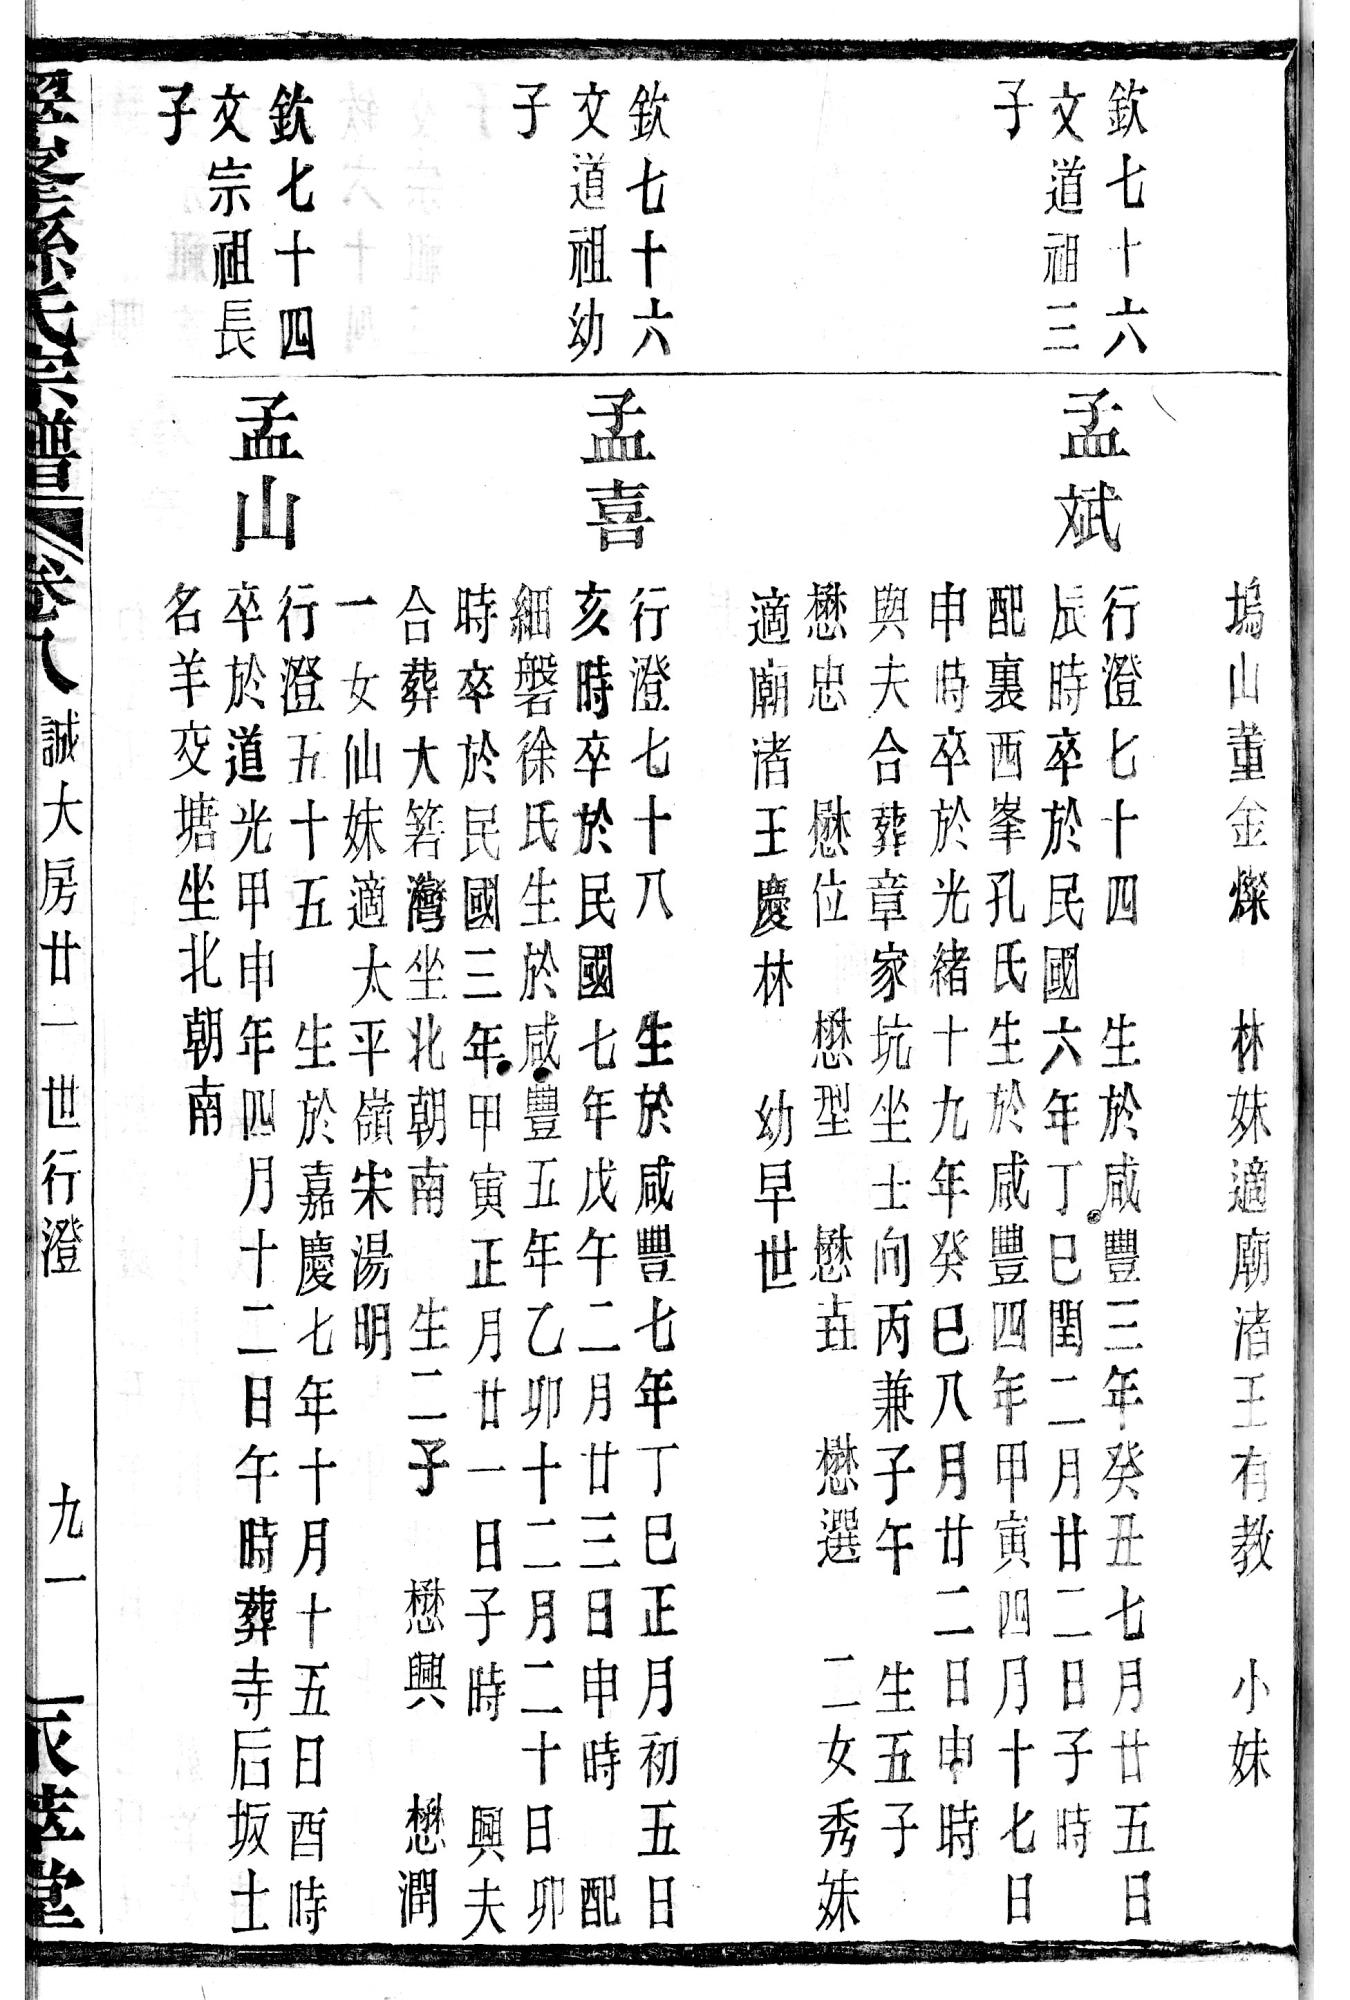 塢山董金燦　林妹適廟渚王有教　小妹
欽七十六
文道祖三
子
孟斌
行澄七十四　生於咸豐三年癸丑七月廿五日
辰時卒於民國六年丁巳閏二月廿二日子時
配裏西峯孔氏生於咸豐四年甲寅四月十七日
申時卒於光緒十九年癸巳八月廿二日申時
與夫合葬章家坑坐士向丙兼子午　生五子
懋忠　懋位　懋型　懋垚　懋選　二女秀妹
適廟渚王慶林　幼早世
欽七十六
文道祖幼
子
孟喜
行澄七十八　生於咸豐七年丁巳正月初五日
亥時卒於民國七年戊午二月廿三日申時　配
細磐徐氏生於咸豐五年乙卯十二月二十日卯
時卒於民國三年甲寅正月廿一日子時　興夫
合葬大箬灣坐北朝南　生二子　懋興　懋潤
一女仙妹適太平嶺宋湯明
欽七十四
文宗祖長
子
孟山
行澄五十五　生於嘉慶七年十月十五日酉時
卒於道光甲申年四月十二日午時葬寺后坂土
名羊交塘坐北朝南
孫氏宗譜
卷八
誠大房廿一世行澄
九一
萃堂